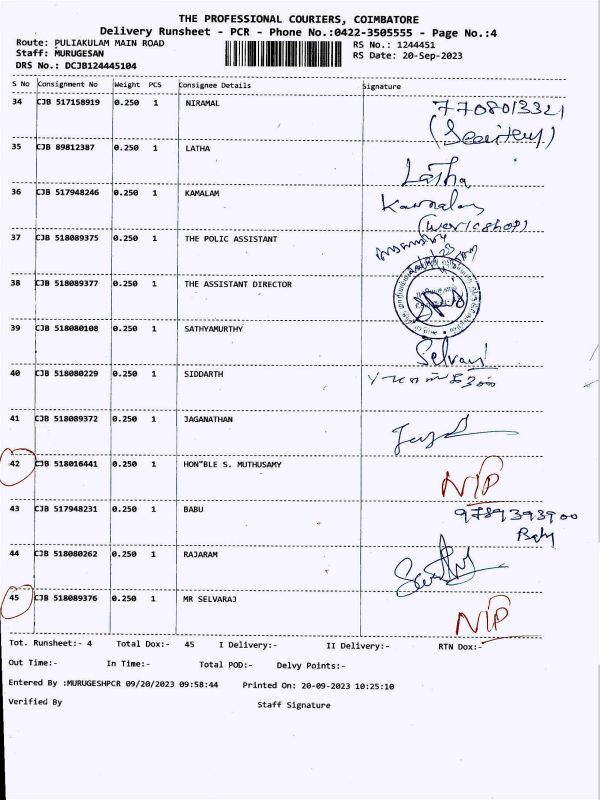 THE PROFESSIONAL COURIERS, COIMBATORE
Delivery Runsheet - PCR - Phone No.:0422-3505555 - Page No.:4
Route: PULIAKULAM MAIN ROAD RS No.: 1244451
Staff: MURUGESAN RS Date: 20-Sep-2023
DRS No.: DCJB124445104
S No Consignment No Weight PCS Consignee Details Signature
34 CJB 517158919 0.250 1 NIRAMAL 7708013321
(Security)
35 CJB 89812387 0.250 1 LATHA
Latha
36 CJB 517948246 0.250 1 KAMALAM Kamalam
(workshop)
37 CJB 518089375 0.250 1 THE POLIC ASSISTANT
38 CJB 518089377 0.250 1 THE ASSISTANT DIRECTOR
39 CJB 518080108 0.250 1 SATHYAMURTHY
Selvar
40 CJB 518080229 0.250 1 SIDDARTH
41 CJB 518089372 0.250 1 JAGANATHAN
42 CJB 518016441 0.250 1 HON"BLE S. MUTHUSAMY NIP
43 CJB 517948231 0.250 1 BABU 9789393900
Baby
44 CJB 518080262 0.250 1 RAJARAM
45 CJB 518089376 0.250 1 MR SELVARAJ NIP
Tot. Runsheet:- 4 Total Dox:- 45 I Delivery:- II Delivery:- RTN Dox:-
Out Time:- In Time:- Total POD:- Delvy Points:-
Entered By :MURUGESHPCR 09/20/2023 09:58:44 Printed On: 20-09-2023 10:25:10
Verified By Staff Signature